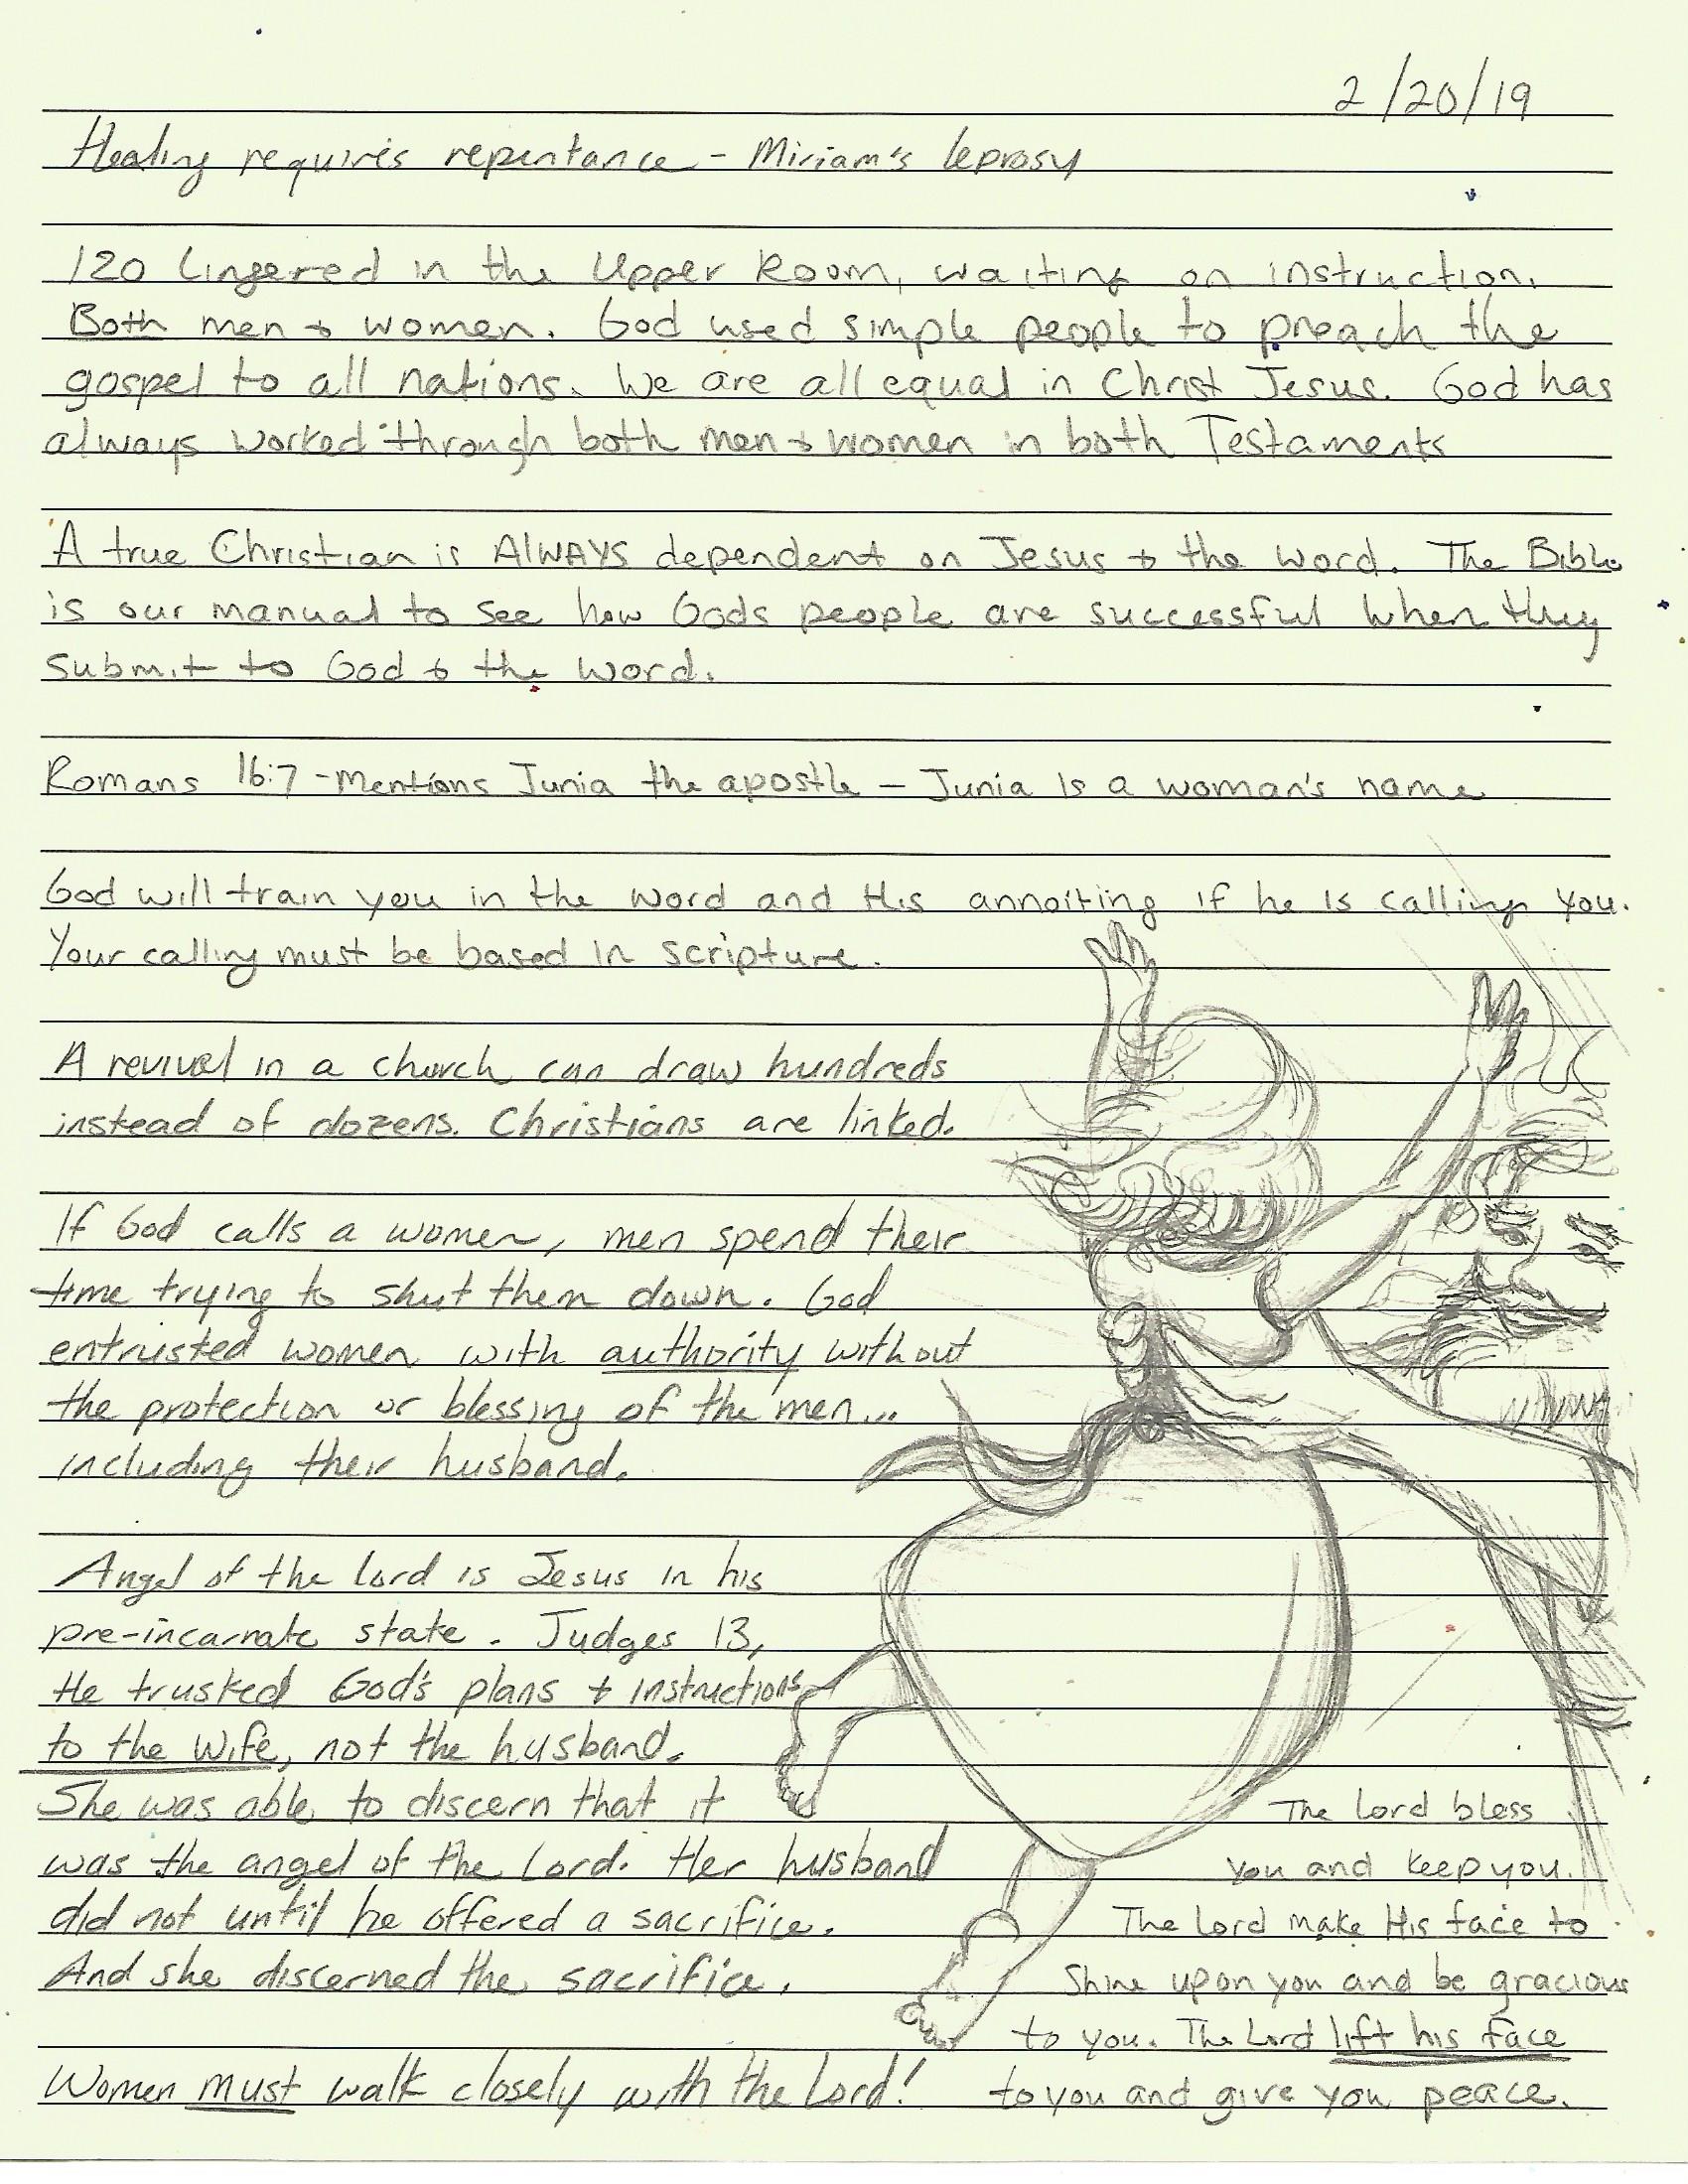 2/20/19
Healing requires repentance - Miriam's leprosy
120 lingered in the Upper Room, waiting on instruction.
Both men + women. God used simple people to preach the
gospel to all nations. We are all equal in Christ Jesus. God has
always worked through both men + women in both Testaments
A true Christian is AlWAYS dependent on Jesus + the Word. The Bible
is our manual to see how Gods people are successful when they
submit to God + the Word.
Romans 16:7 - Mentions Junia the apostle - Junia is a woman's name
God will train you in the Word and His annoiting if he is calling you.
Your calling must be based in scripture.
A revival in a church can draw hundreds
instead of dozens. Christians are linked.
If God calls a women, men spend their
time trying to shut them down. God
entrusted women with authority without
the protection or blessing of the men...
including their husband.
Angel of the Lord is Jesus in his
pre-incarnate state. Judges 13,
He trusted God's plans + instructions
to the wife, not the husband.
She was able to discern that it
was the angel of the Lord. Her husband
did not until he offered a sacrifice.
And she discerned the sacrifice.
Women must walk closely with the Lord!
The Lord bless
you and keep you.
The Lord make His face to
Shine upon you and be gracious
to you. The Lord lift his face
to you and give you peace.